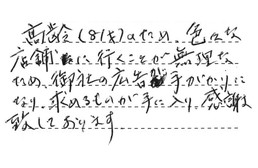 高齢(81才)のため、色々な
店舗に行くことが無理な
ため、御社の広告が手がかりに
なり、求めるものが手に入り、感謝
致しております